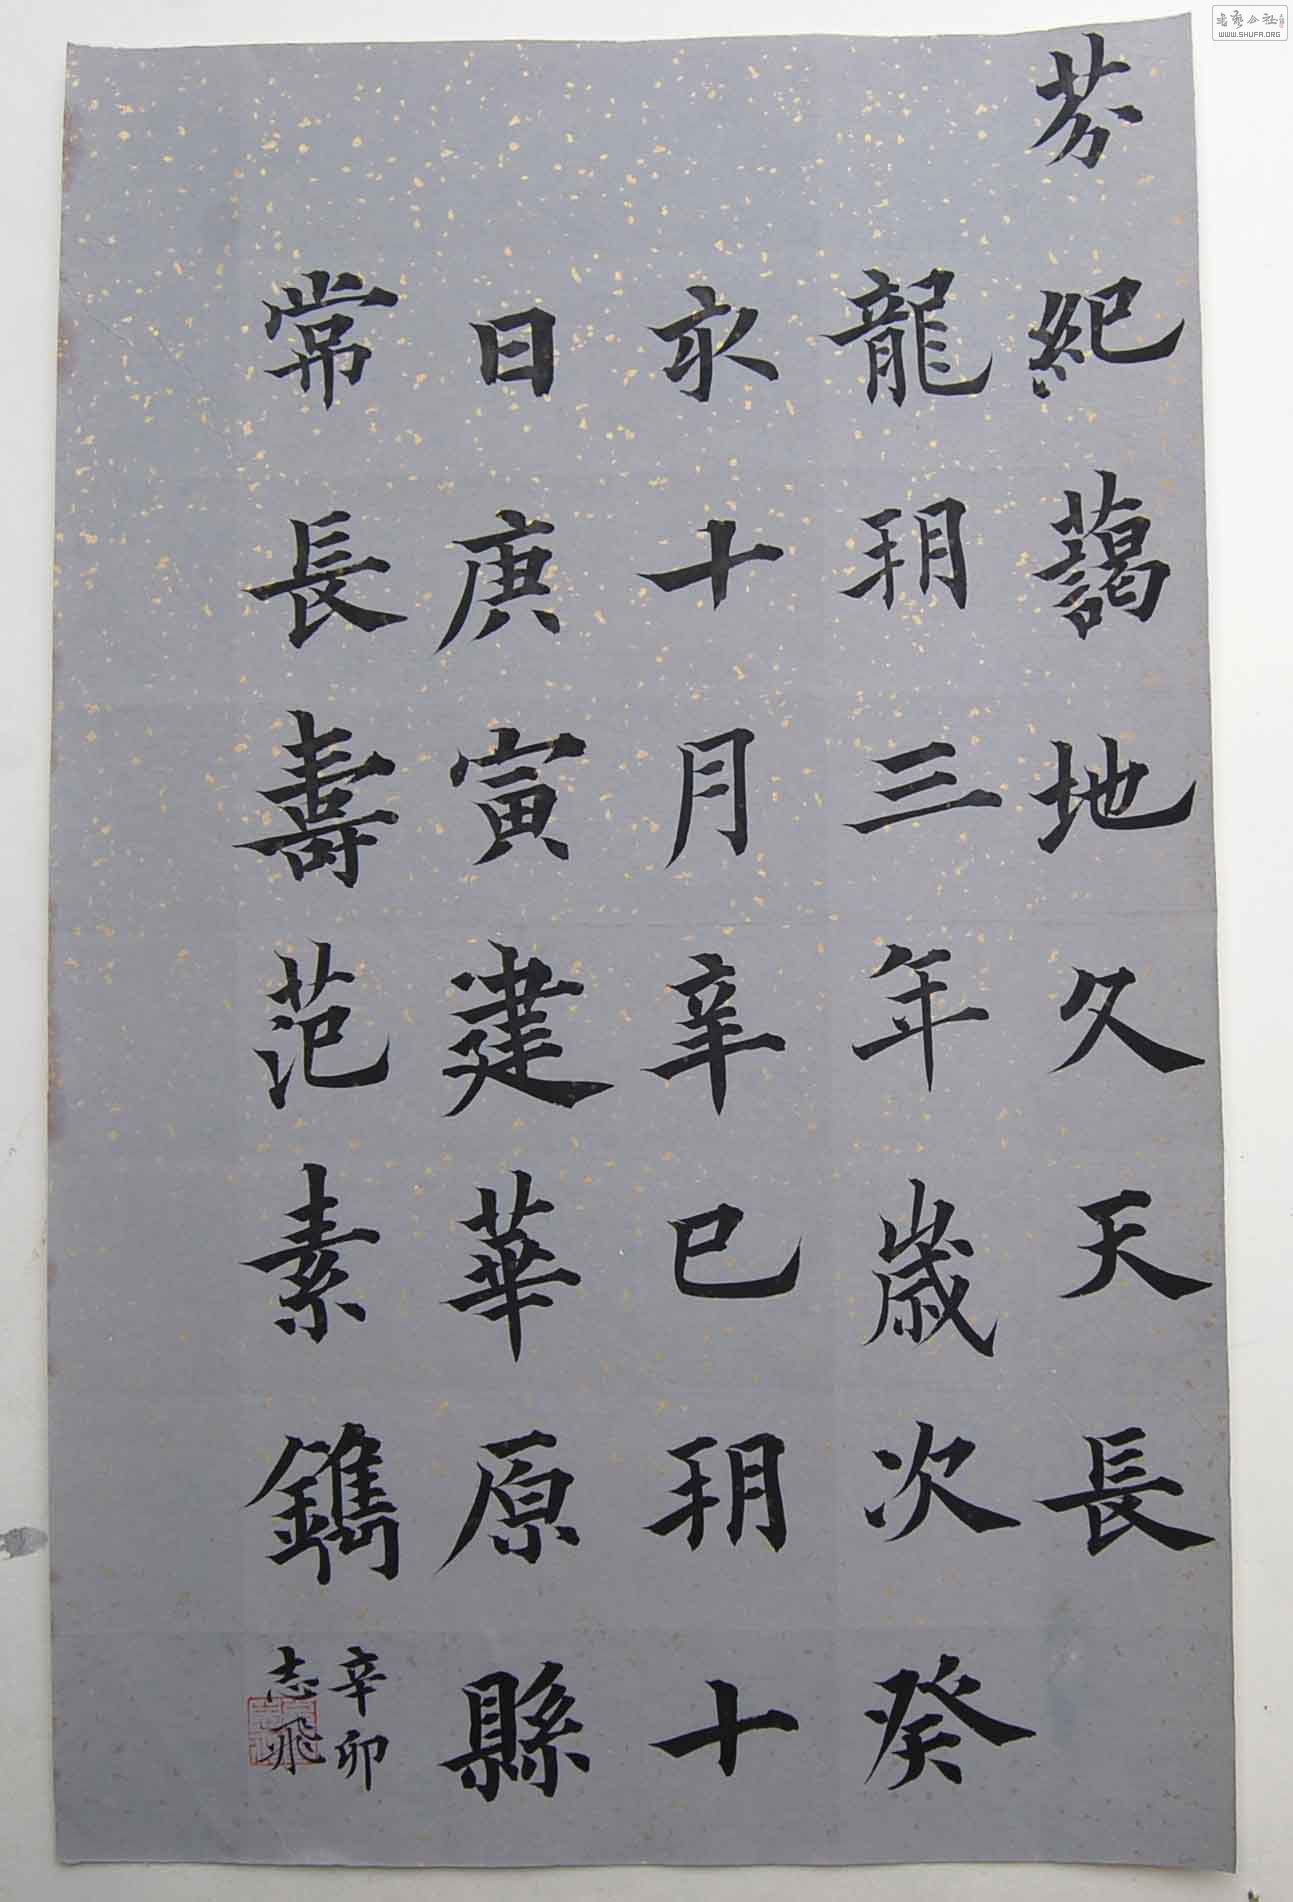 芬紀藹地久天長
龍朔三年歲次癸
亥十月辛巳朔十
日庚寅建華原縣
常長壽范素鐫
辛卯
志飛
書藝公社
WWW.SHUFA.ORG